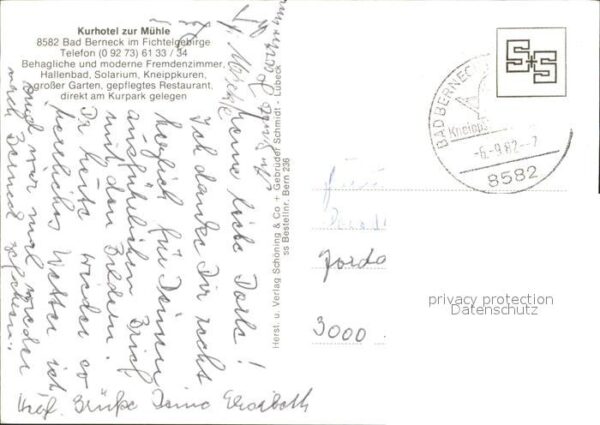 Kurhotel zur Mühle
8582 Bad Berneck im Fichtelgebirge
Telefon (0 92 73) 61 33 / 34
Behagliche und moderne Fremdenzimmer,
Hallenbad, Solarium, Kneippkuren,
großer Garten, gepflegtes Restaurant,
direkt am Kurpark gelegen
Meine liebe
Ich danke Dir recht
herzlich für Deinen
ausführlichen Brief
mit den Bildern.
Da heute wieder so
herrliches Wetter
sind wir mal wieder
nach Berneck gefahren.
Herzl. Grüße Deine Elisabeth
Herst. u. Verlag Schöning & Co + Gebrüder Schmidt - Lübeck
ss Bestellnr. Bern 236
S+S
BAD BERNEC
Kneipp
-6.-9.82.-7
8582
3000
privacy protection
Datenschutz